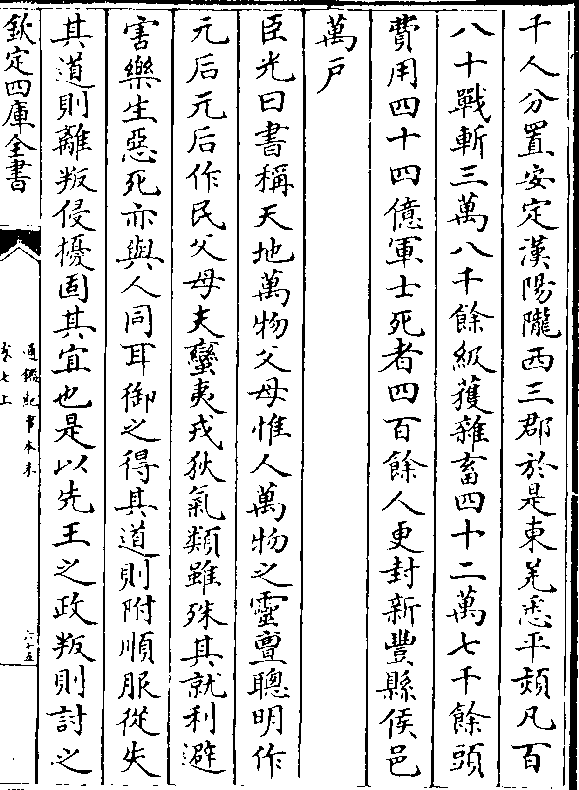 千人分置安定漢陽隴西三郡於是東羌悉平熲凡百
八十戰斬三萬八千餘級獲雜畜四十二萬七千餘頭
費用四十四億軍士死者四百餘人更封新豐縣侯邑
萬戸
臣光曰書稱天地萬物父母惟人萬物之靈亶聰明作
元后元后作民父母夫蠻夷戎狄氣類雖殊其就利避
害樂生惡死亦與人同耳御之得其道則附順服從失
其道則離叛侵擾固其宜也是以先王之政叛則討之
欽定四庫全書
通鑑紀事本末
卷七上
六十五